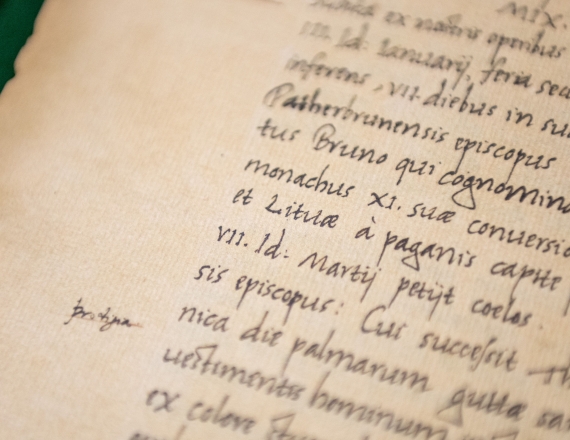 MIX.
ex operibus
III. Id: Ianuarij, feria sec
inferens, VII. diebus in su
Patherbrunensis episcopus
tus Bruno qui cognomina
monachus XI. suæ conuersio
et Lituæ à paganis capite
VII. Id: Martij petijt coelos.
sis episcopus: Cui successit
nica die palmarum guttæ san
uestimentis hominum
ex colore